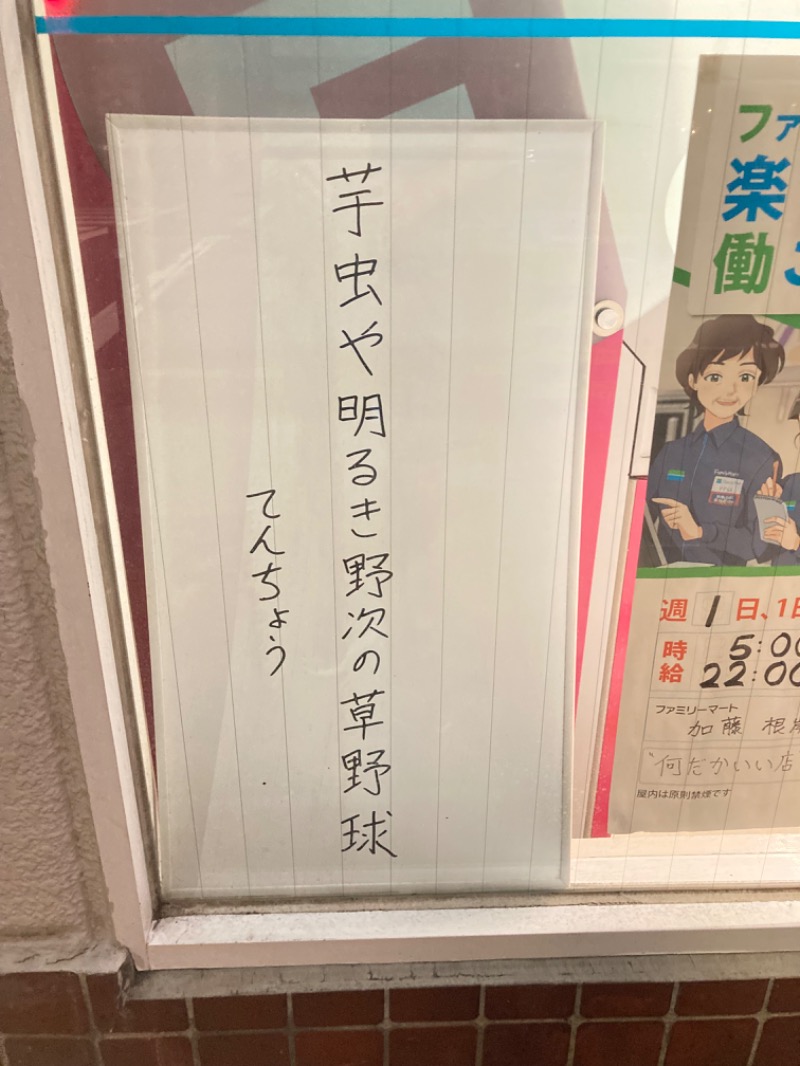 芋虫や明るき野次の草野球
てんちょう
ファ
楽
働
週1日、1日
時 5:00
給 22:00
ファミリーマート
加藤 根岸
"何だかいい店
屋内は原則禁煙です